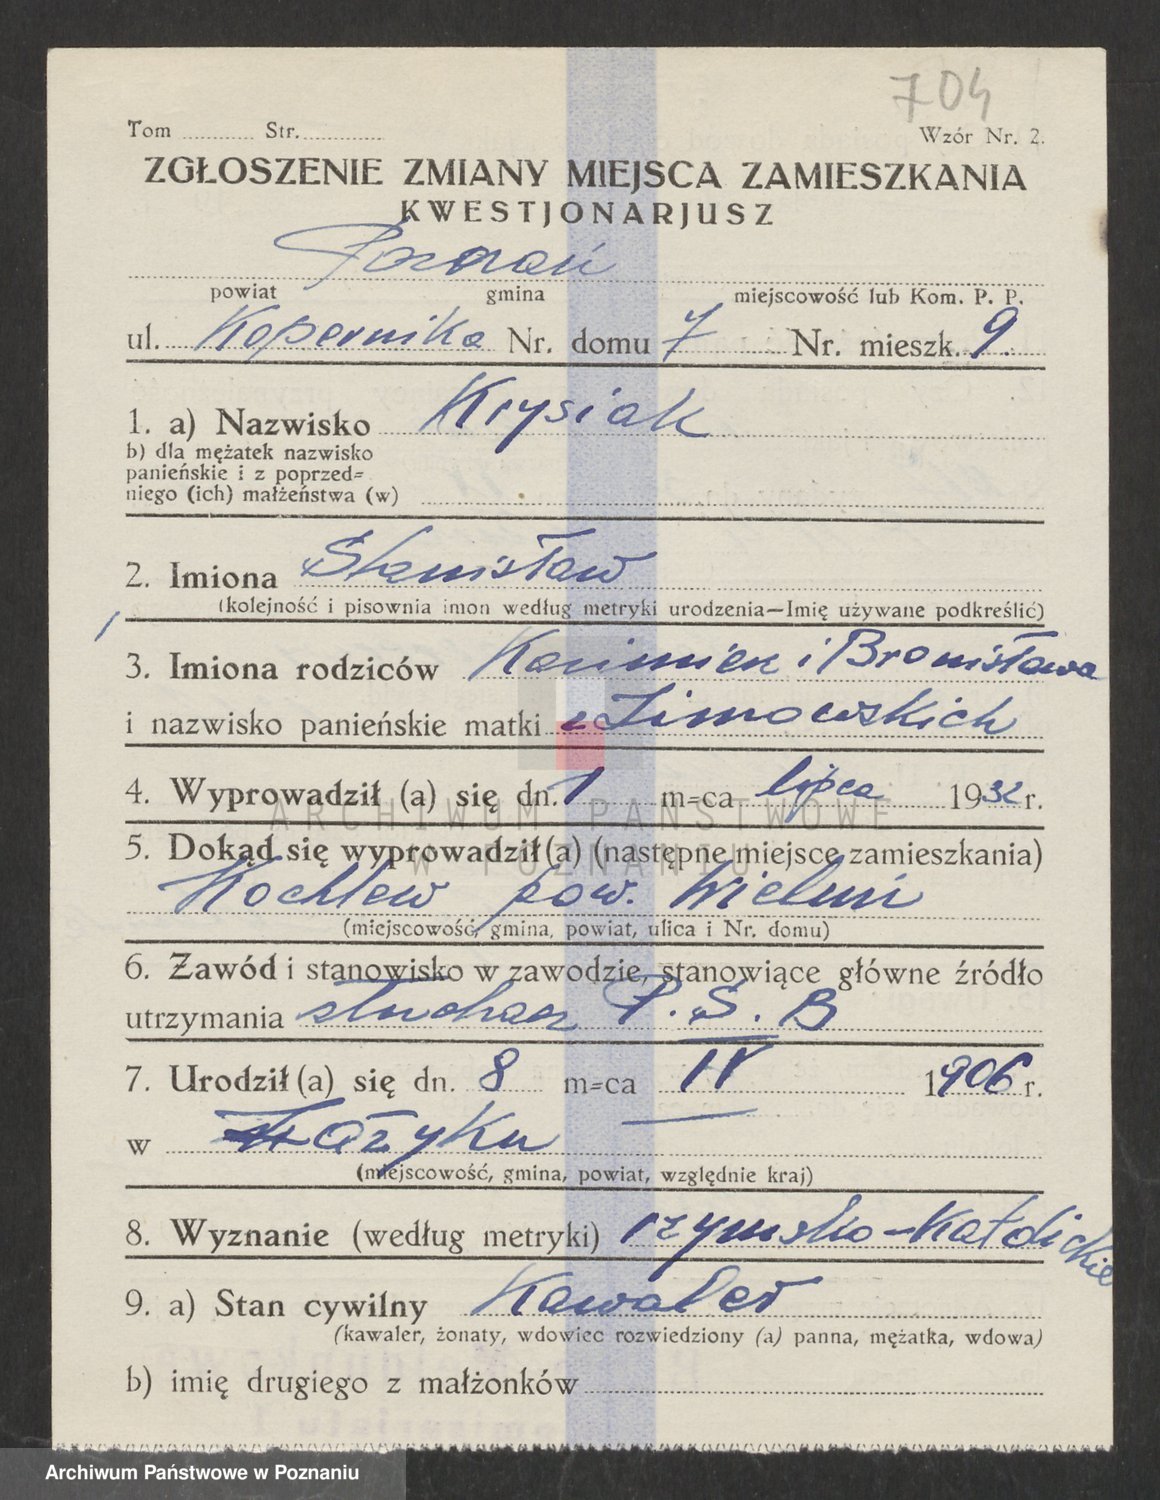 704
Tom ............ Str. ............ Wzór Nr. 2.
ZGŁOSZENIE ZMIANY MIEJSCA ZAMIESZKANIA
KWESTJONARJUSZ
Poznań
powiat gmina miejscowość lub Kom. P. P.
ul. Kopernika Nr. domu 7 Nr. mieszk. 9.
1. a) Nazwisko Krysiak
b) dla mężatek nazwisko
panieńskie i z poprzed=
niego (ich) małżeństwa (w)
2. Imiona Stanisław
(kolejność i pisownia imion według metryki urodzenia—Imię używane podkreślić)
3. Imiona rodziców Kazimierz i Bronisława
i nazwisko panieńskie matki z Zimowskich
4. Wyprowadził (a) się dn. 1 m=ca lipca 1932 r.
ARCHIWUM PAŃSTWOWE
W POZNANIU
5. Dokąd się wyprowadził (a) (następne miejsce zamieszkania)
Kochlew pow. Wieluń
(miejscowość, gmina, powiat, ulica i Nr. domu)
6. Zawód i stanowisko w zawodzie, stanowiące główne źródło
utrzymania słuchacz P. S. B
7. Urodził (a) się dn. 8 m=ca IV 1906 r.
w Łążyku
(miejscowość, gmina, powiat, względnie kraj)
8. Wyznanie (według metryki) rzymsko-katolickie
9. a) Stan cywilny Kawaler
(kawaler, żonaty, wdowiec rozwiedziony (a) panna, mężatka, wdowa)
b) imię drugiego z małżonków
Archiwum Państwowe w Poznaniu